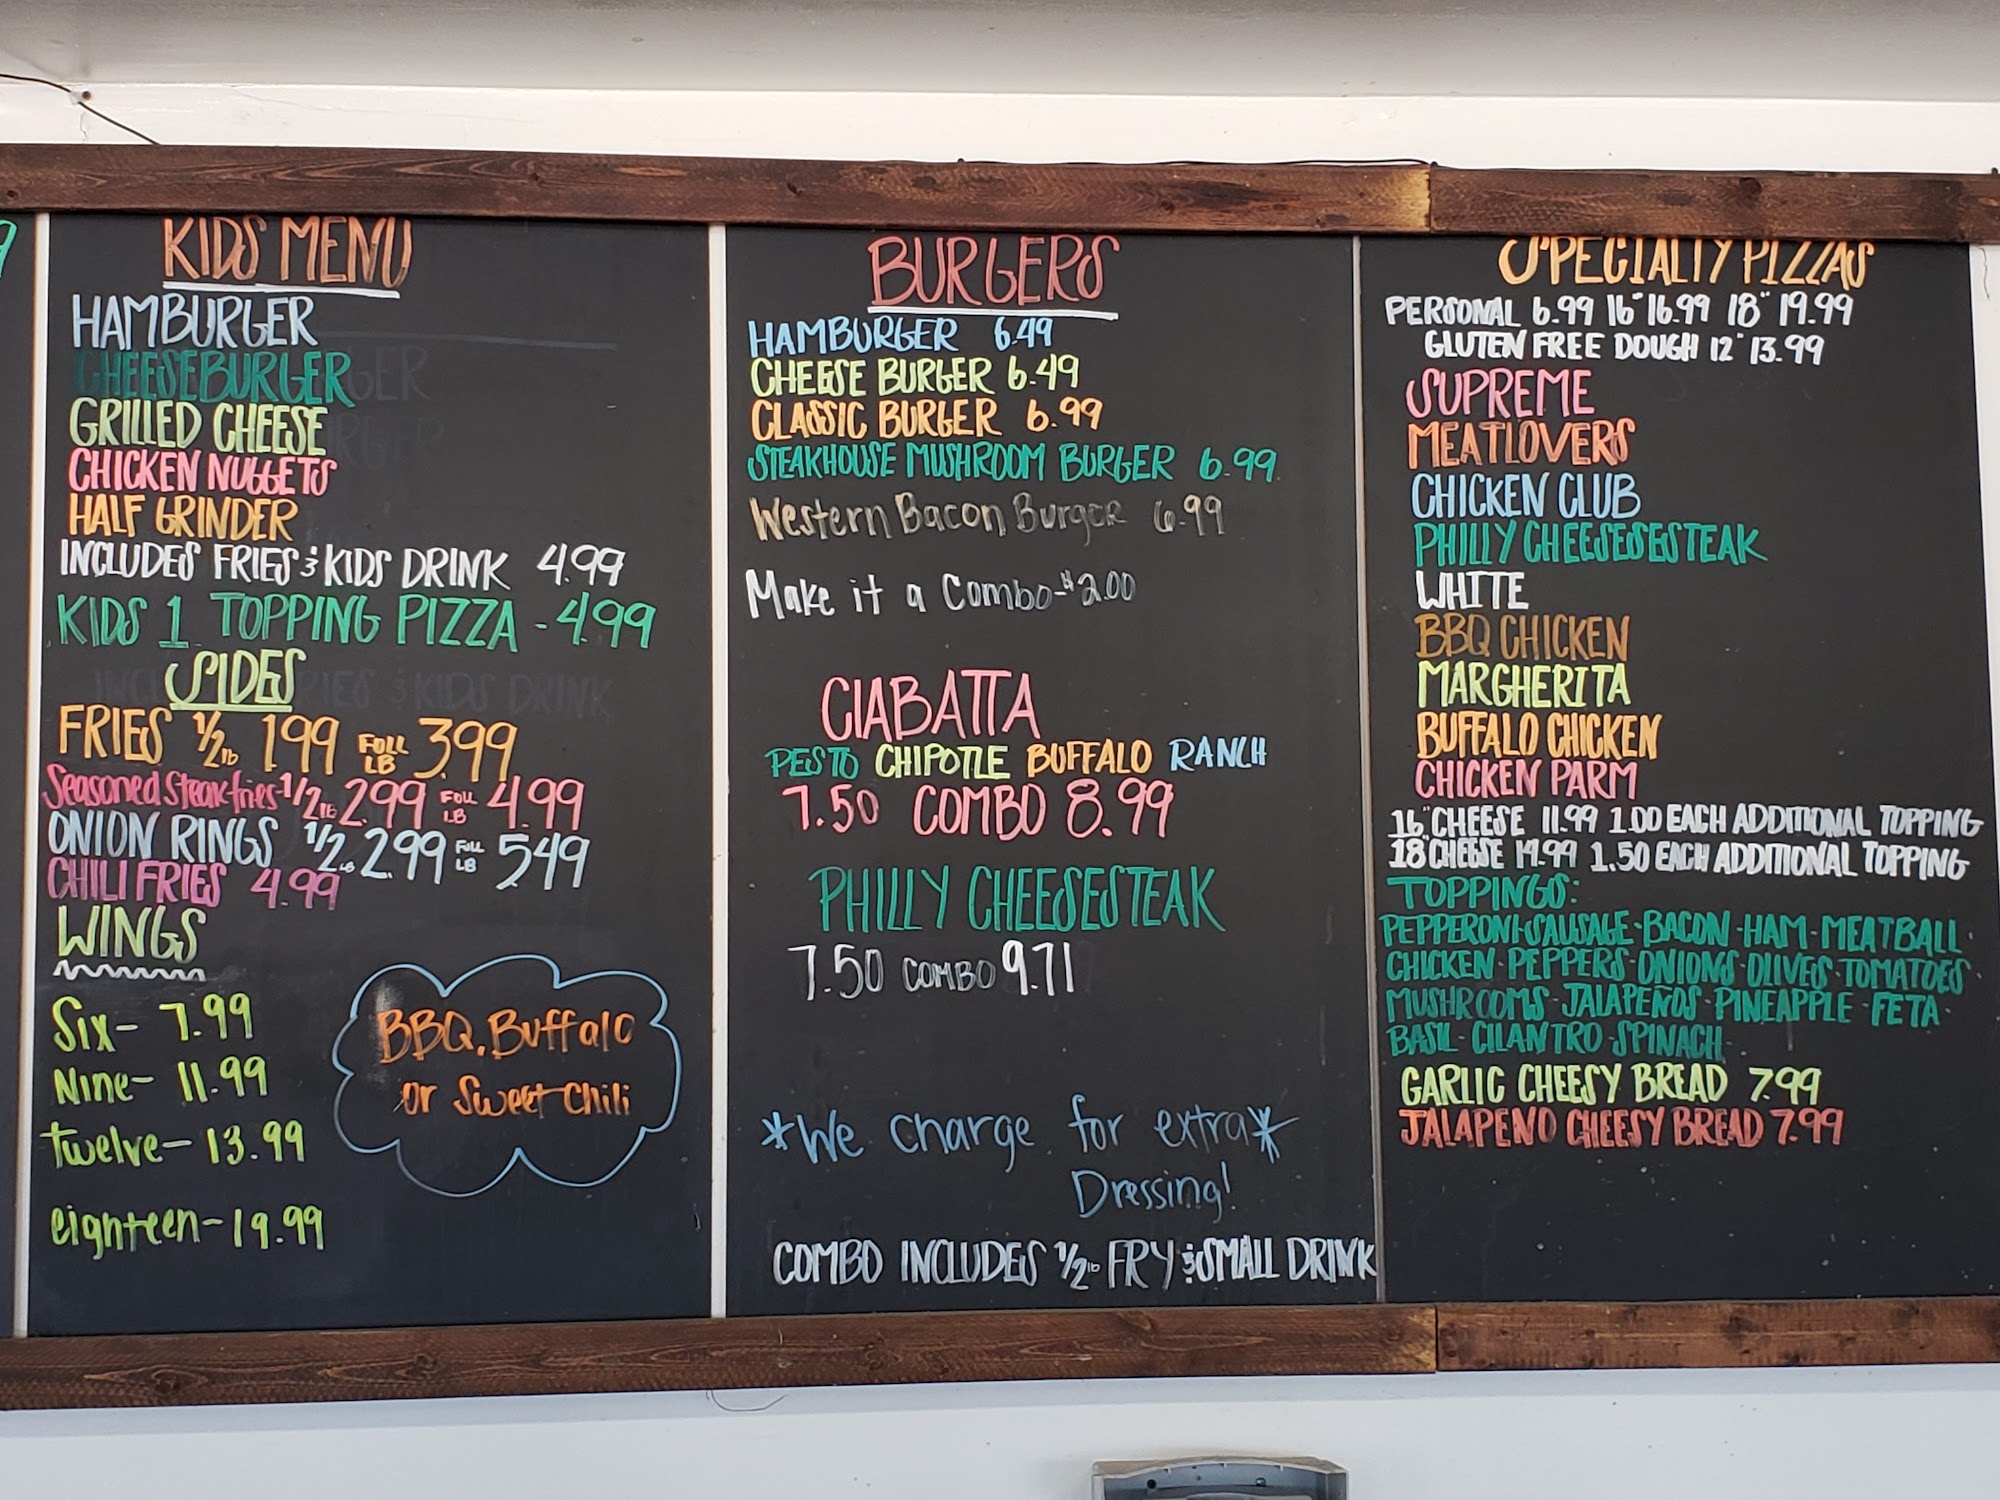 KIDS MENU
HAMBURGER
CHEESEBURGER
GRILLED CHEESE
CHICKEN NUGGETS
HALF GRINDER
INCLUDES FRIES & KIDS DRINK 4.99
KIDS 1 TOPPING PIZZA - 4.99
SIDES
FRIES 1/2 lb 1.99 FULL LB 3.99
Seasoned Steak fries - 1/2 LB 2.99 FULL LB 4.99
ONION RINGS 1/2 LB 2.99 FULL LB 5.49
CHILI FRIES 4.99
WINGS
Six - 7.99
Nine - 11.99
twelve - 13.99
eighteen - 19.99
BBQ, Buffalo
or Sweet Chili
BURGERS
HAMBURGER 6.49
CHEESE BURGER 6.49
CLASSIC BURGER 6.99
STEAKHOUSE MUSHROOM BURGER 6.99
Western Bacon Burger 6.99
Make it a Combo - $2.00
CIABATTA
PESTO CHIPOTLE BUFFALO RANCH
7.50 COMBO 8.99
PHILLY CHEESESTEAK
7.50 COMBO 9.71
*We charge for extra*
Dressing!
COMBO INCLUDES 1/2 lb FRY & SMALL DRINK
SPECIALTY PIZZAS
PERSONAL 6.99 16" 16.99 18" 19.99
GLUTEN FREE DOUGH 12" 13.99
SUPREME
MEATLOVERS
CHICKEN CLUB
PHILLY CHEESESESTEAK
WHITE
BBQ CHICKEN
MARGHERITA
BUFFALO CHICKEN
CHICKEN PARM
16" CHEESE 11.99 1.00 EACH ADDITIONAL TOPPING
18" CHEESE 14.99 1.50 EACH ADDITIONAL TOPPING
TOPPINGS:
PEPPERONI · SAUSAGE · BACON · HAM · MEATBALL ·
CHICKEN · PEPPERS · ONIONS · OLIVES · TOMATOES ·
MUSHROOMS · JALAPEÑOS · PINEAPPLE · FETA ·
BASIL · CILANTRO · SPINACH
GARLIC CHEESY BREAD 7.99
JALAPENO CHEESY BREAD 7.99